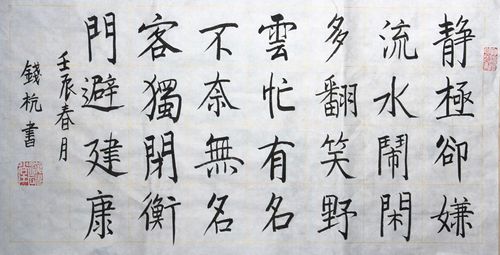 静極卻嫌
流水鬧閑
多翻笑野
雲忙有名
不奈無名
客獨閉衡
門避建康
壬辰春月
錢杭書